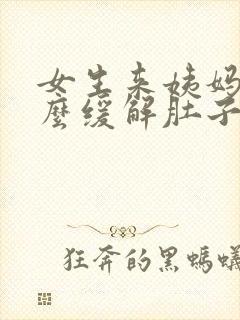 女生来姨妈
麼缓解肚子
狂奔的黑蚂蚁